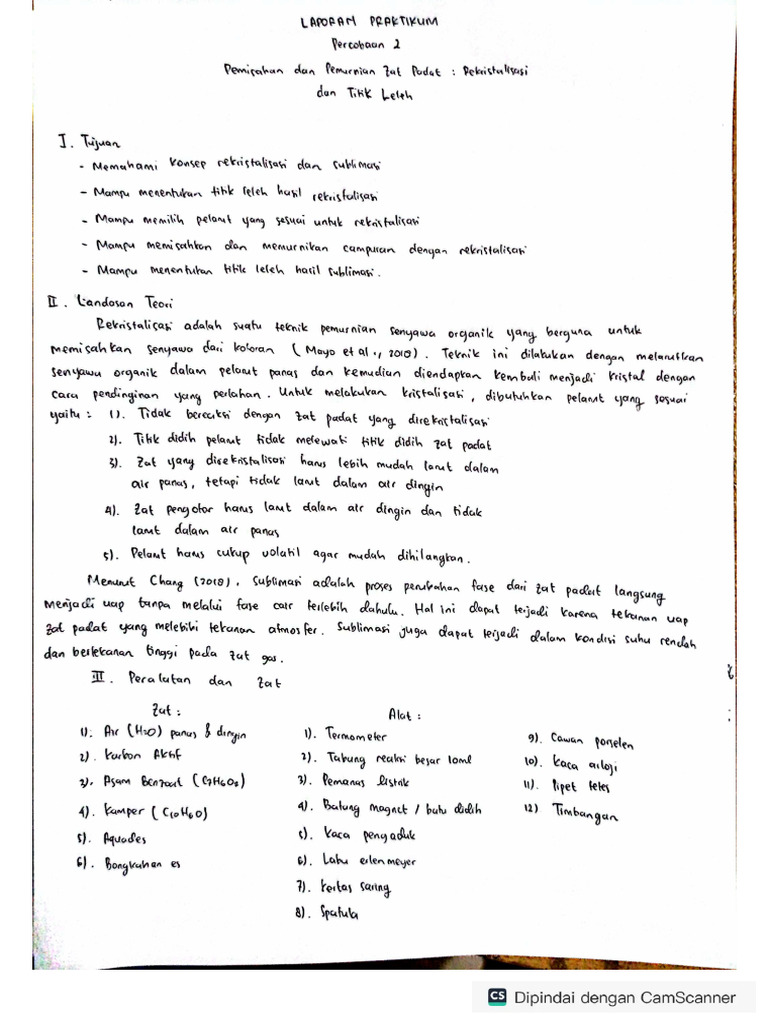 LAPORAN PRAKTIKUM
Percobaan 2
Pemisahan dan Pemurnian Zat Padat : Rekristalisasi
dan Titik Leleh
I. Tujuan
- Memahami konsep rekristalisasi dan sublimasi
- Mampu menentukan titik leleh hasil rekristalisasi
- Mampu memilih pelarut yang sesuai untuk rekristalisasi
- Mampu memisahkan dan memurnikan campuran dengan rekristalisasi
- Mampu menentukan titik leleh hasil sublimasi.
II. Landasan Teori
Rekristalisasi adalah suatu teknik pemurnian senyawa organik yang berguna untuk
memisahkan senyawa dari kotoran (Mayo et al., 2018). Teknik ini dilakukan dengan melarutkan
senyawa organik dalam pelarut panas dan kemudian diendapkan kembali menjadi kristal dengan
cara pendinginan yang perlahan. Untuk melakukan kristalisasi, dibutuhkan pelarut yang sesuai
yaitu : 1). Tidak bereaksi dengan zat padat yang direkristalisasi
2). Titik didih pelarut tidak melewati titik didih zat padat
3). Zat yang direkristalisasi harus lebih mudah larut dalam
air panas, tetapi tidak larut dalam air dingin
4). Zat pengotor harus larut dalam air dingin dan tidak
larut dalam air panas
5). Pelarut harus cukup volatil agar mudah dihilangkan.
Menurut Chang (2018), sublimasi adalah proses perubahan fase dari zat padat langsung
menjadi uap tanpa melalui fase cair terlebih dahulu. Hal ini dapat terjadi karena tekanan uap
zat padat yang melebihi tekanan atmosfer. Sublimasi juga dapat terjadi dalam kondisi suhu rendah
dan bertekanan tinggi pada zat gas.
III. Peralatan dan Zat
Zat :
1). Air (H2O) panas & dingin
2). Karbon Aktif
3). Asam Benzoat (C7H6O2)
4). Kamper (C10H6O)
5). Aquades
6). Bongkahan es
Alat :
1). Termometer
2). Tabung reaksi besar 10ml
3). Pemanas listrik
4). Batang magnet / batu didih
5). Kaca pengaduk
6). Labu erlenmeyer
7). Kertas saring
8). Spatula
9). Cawan porselen
10). Kaca arloji
11). Pipet tetes
12) Timbangan
CS Dipindai dengan CamScanner